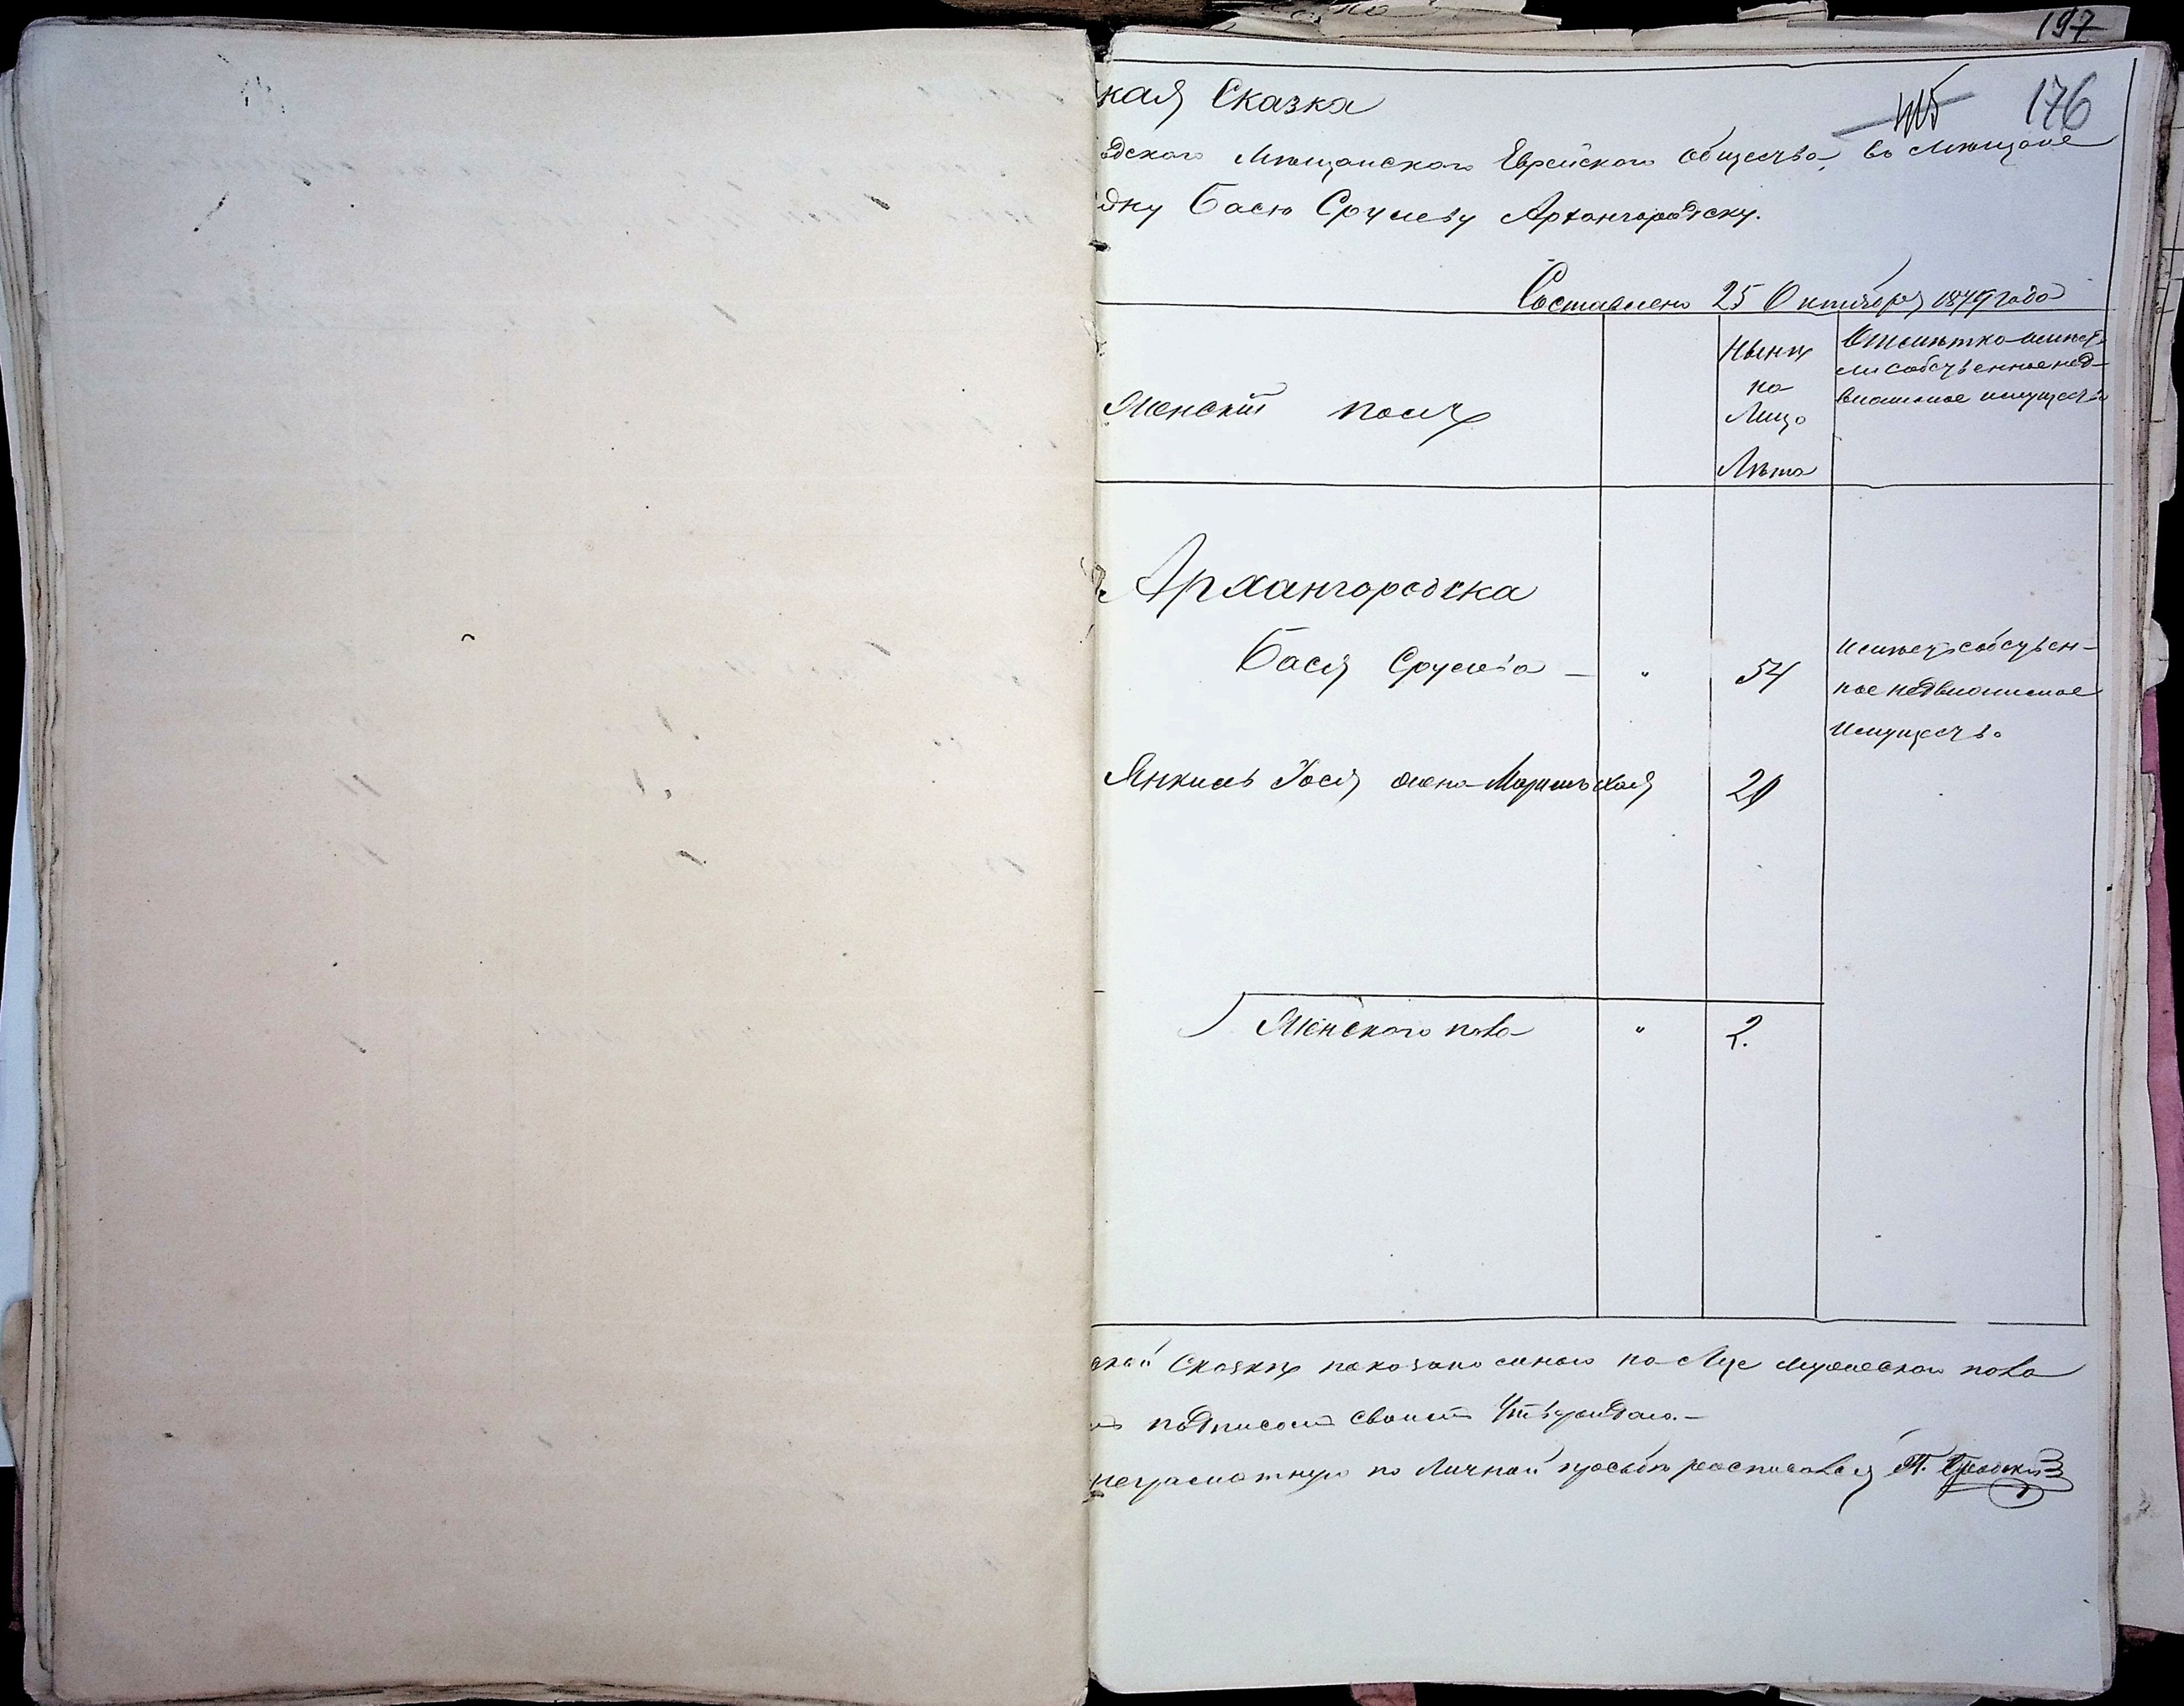 197
176
кая Сказка
одского Мѣщанского Еврейского общества, въ Мѣщане
дну Басю Срулеву Архангородску.
Составлено 25 Октября 1874 года
Женскій полъ
Нынѣ
на
Лицо
Лѣта
Отмѣтка имѣетъ
ли собственное нед-
вижимое имущество
Архангородска
Бася Срулева — " 54
имѣетъ собствен-
ное недвижимое
имущество
Янкиль Хося жена
20
Женского пола " 2.
ской Сказкѣ показано мною на Лице мужеского пола
подписомъ своимъ Утверждаю.—
неграмотную по Личной просьбѣ росписовался